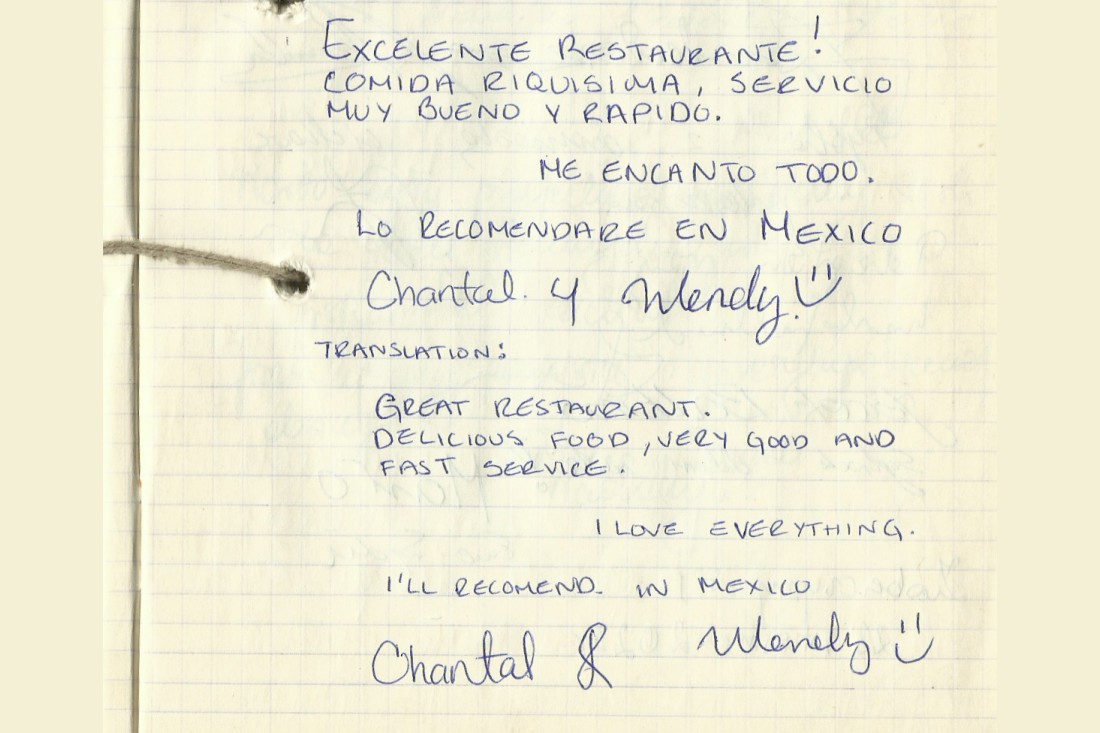 EXCELENTE RESTAURANTE!
COMIDA RIQUISIMA, SERVICIO
MUY BUENO Y RAPIDO.
ME ENCANTO TODO.
LO RECOMENDARE EN MEXICO
Chantal. y Wendy. !!
TRANSLATION:
GREAT RESTAURANT.
DELICIOUS FOOD, VERY GOOD AND
FAST SERVICE.
I LOVE EVERYTHING.
I'LL RECOMEND. IN MEXICO
Chantal & Wendy